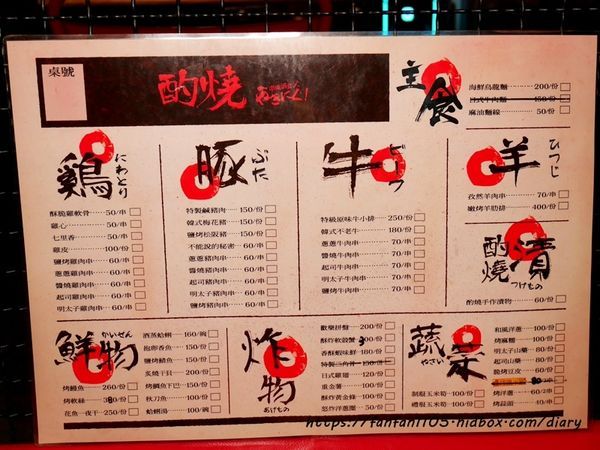 桌號
酌燒
主食
海鮮烏龍麵 200/份
日式牛肉麵 150/份
麻油麵線 50/份
鷄 にわとり
酥脆雞軟骨 50/串
雞心 50/串
七里香 50/串
雞皮 100/份
鹽烤雞肉串 60/串
蔥蔥雞肉串 60/串
醬燒雞肉串 60/串
起司雞肉串 60/串
明太子雞肉串 60/串
豚 ぶた
特製鹹豬肉 150/份
韓式梅花豬 150/份
鹽烤松阪豬 150/份
不能說的秘密 60/串
蔥蔥豬肉串 60/串
醬燒豬肉串 60/串
起司豬肉串 60/串
明太子豬肉串 60/串
鹽烤豬肉串 60/串
牛 ビーフ
特級原味牛小排 250/份
韓式不老牛 180/份
蔥蔥牛肉串 70/串
醬燒牛肉串 70/串
起司牛肉串 70/串
明太子牛肉串 70/串
鹽烤牛肉串 70/串
羊 ひつじ
孜然羊肉串 70/串
嫩烤羊肋排 100/份
酌燒 漬 つけもの
酌燒手作漬物 60/份
鮮物 かいせん
酒蒸蛤蜊 160/碗
泡卷香魚 150/份
鹽烤鯖魚 150/份
炙燒干貝 50/串
烤鯛魚下巴 150/份
秋刀魚 100/份
蛤蜊湯 100/碗
烤鰻魚 260/份
烤軟絲 380/份
花魚一夜干 250/份
炸物 あげもの
歡樂拼盤 200/份
酥炸軟殼蟹
香酥蝦味鮮 160/份
特製三角骨 150/份
日式雞翅 120/份
重金薯 100/份
酥炸黃金條 100/份
怒炸洋蔥圈 50/份
蔬菜 やさい
和風洋蔥 100/份
烤麻糬 100/份
明太子山藥 80/份
起司山藥 80/份
脆烤豆皮 60/份
80/串
制服玉米筍 100/份
烤洋蔥 60/份
禮服玉米筍 100/份
烤蒜頭 40/串
https://fanfan1103.nidbox.com/diary